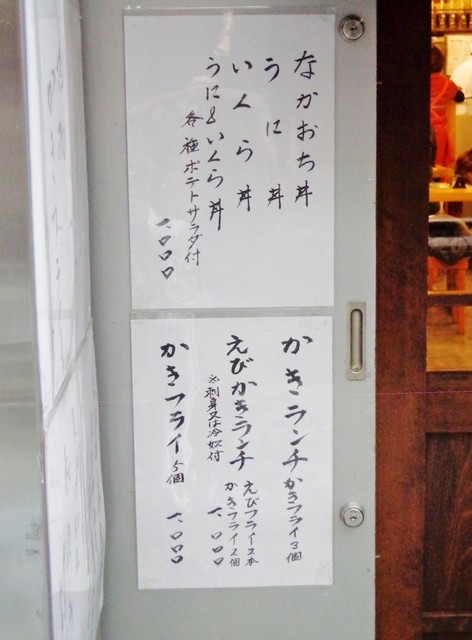 なかおち丼
うに丼
いくら丼
うに&いくら丼
各種ポテトサラダ付
一、〇〇〇
かきランチ かきフライ3個
えびかきランチ えびフライ2本
かきフライ2個
※刺身又は冷奴付
一、〇〇〇
かきフライ5個
一、〇〇〇